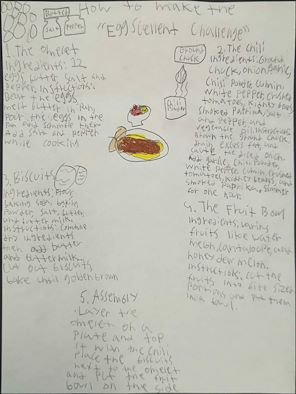 How to make the
"Eggscellent Challenge"
Butter
Salt
Pepper
1. The omelet
Ingredients: 12
eggs, butter, salt and
pepper. Instructions:
melt butter in pan,
Pour the eggs in the
Pan and
Add salt and pepper
while cooking
Ground
Chuck
2. The Chili
Ingredients: Ground
Chuck, onion, garlic,
Chili Powder, Cumin,
White Pepper, crushed
tomatoes, kidney beans,
Smoked Paprika, Salt
and Pepper, and
Brown the Ground Chuck,
drain excess fat, and
Add garlic, Chili Powder,
White Pepper, Cumin, crushed
tomatoes, kidney beans, and
Smoked Paprika, simmer
for one hour.
3. Biscuits
Ingredients: Flour,
baking soda, baking
Powder, salt, butter,
and buttermilk.
instructions: Combine
dry ingredients
then add butter
and buttermilk,
Cut out biscuits
bake until golden brown
4. The Fruit Bowl
Ingredients: various
fruits like water
melon, cantaloupe, and
honey dew melon,
instructions, Cut the
fruits into bite sized
Portions and put them
in a bowl.
5. Assembly
Layer the
omelet on a
Plate and top
it with the chili,
Place the biscuits
next to the omelet
and put the fruit
bowl on the side